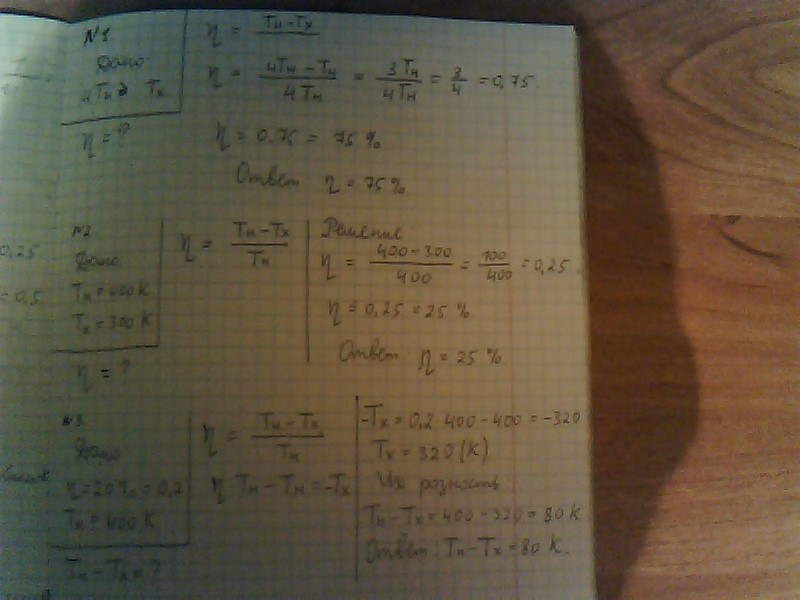 N1
Дано
4Tн Tх
η = ?
η = Tн - Tх
η = 4Tн - Tн / 4Tн = 3Tн / 4Tн = 3/4 = 0,75.
η = 0,75 = 75 %
Ответ η = 75 %
0,25
= 0,5
N2
Дано
Tн = 400 K
Tх = 300 K
η = ?
η = Tн - Tх / Tн
Решение
η = 400 - 300 / 400 = 100 / 400 = 0,25.
η = 0,25 = 25 %
Ответ η = 25 %
N3
Дано
η = 20 % = 0,2
Tн = 400 K
Tн - Tх = ?
η = Tн - Tх / Tн
η Tн - Tн = -Tх
-Tх = 0,2 400 - 400 = -320
Tх = 320 (K)
Их розность
Tн - Tх = 400 - 320 = 80 K
Ответ: Tн - Tх = 80 K.